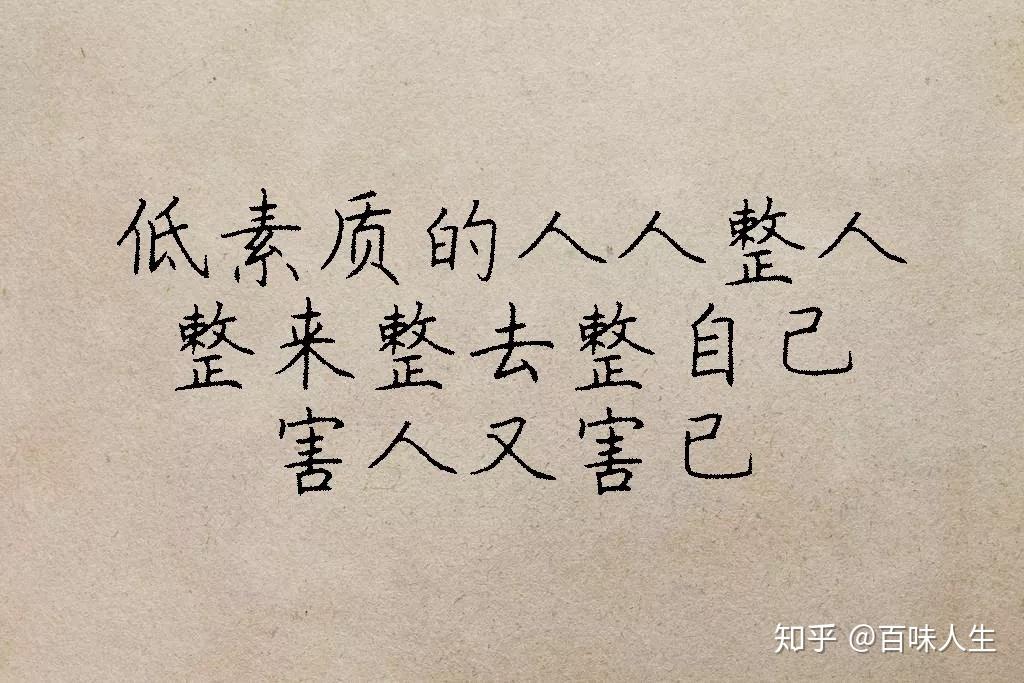 低素质的人人整人
整来整去整自己
害人又害已
知乎 @百味人生